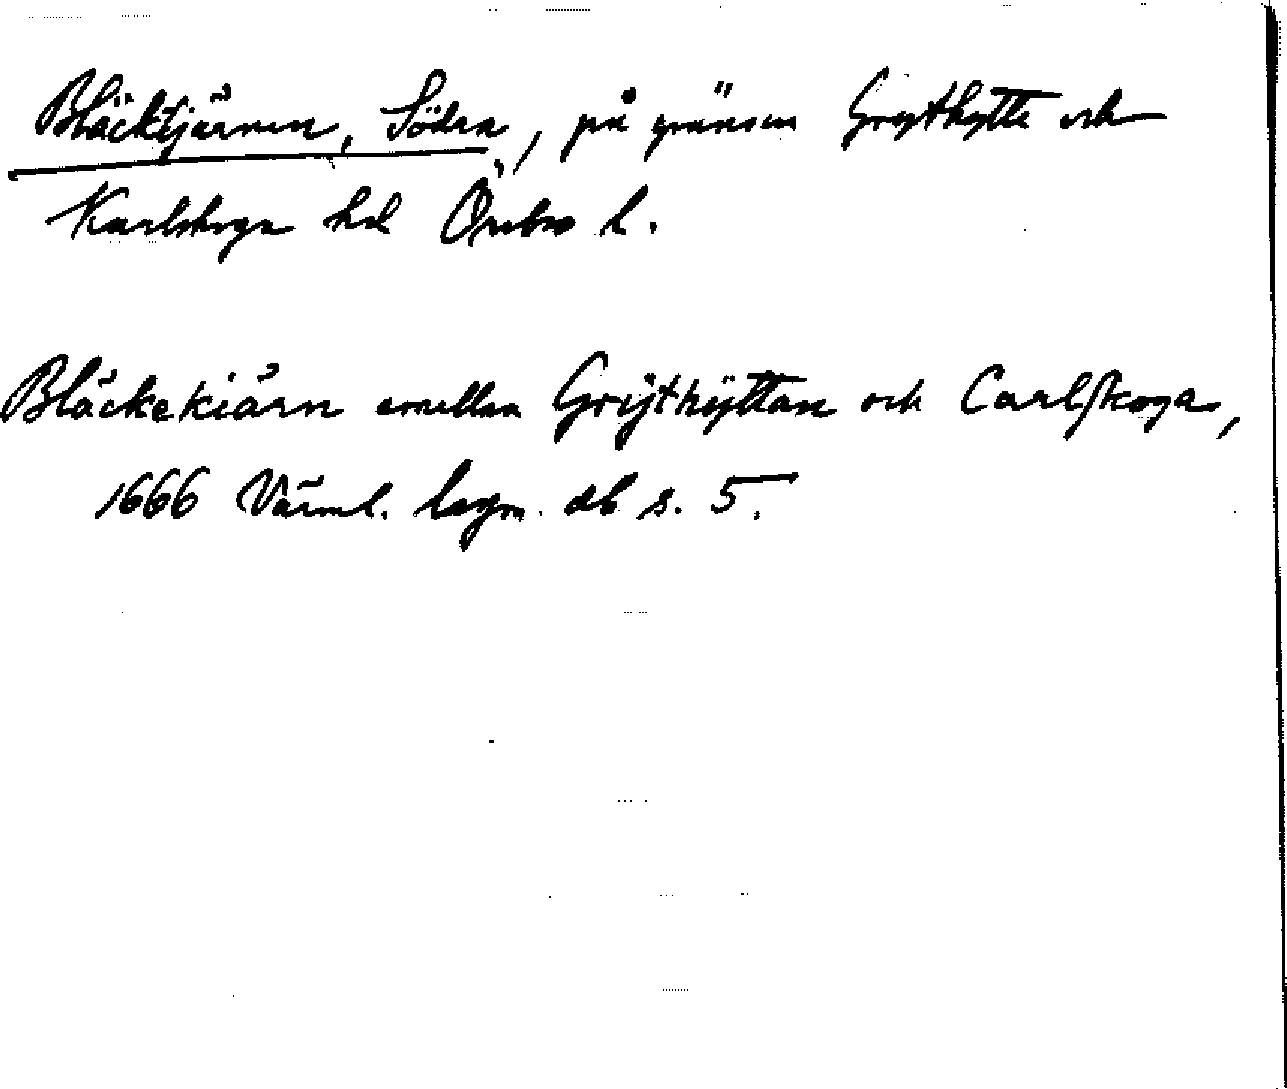 Bläcktjärnen, Södra, på gränsen Grythytte och
Karlskoga hd Örebro l.
Bläckekiärn emellan Grijthÿttan och Carlskoga,
1666 Värml. lagm. db s. 5.